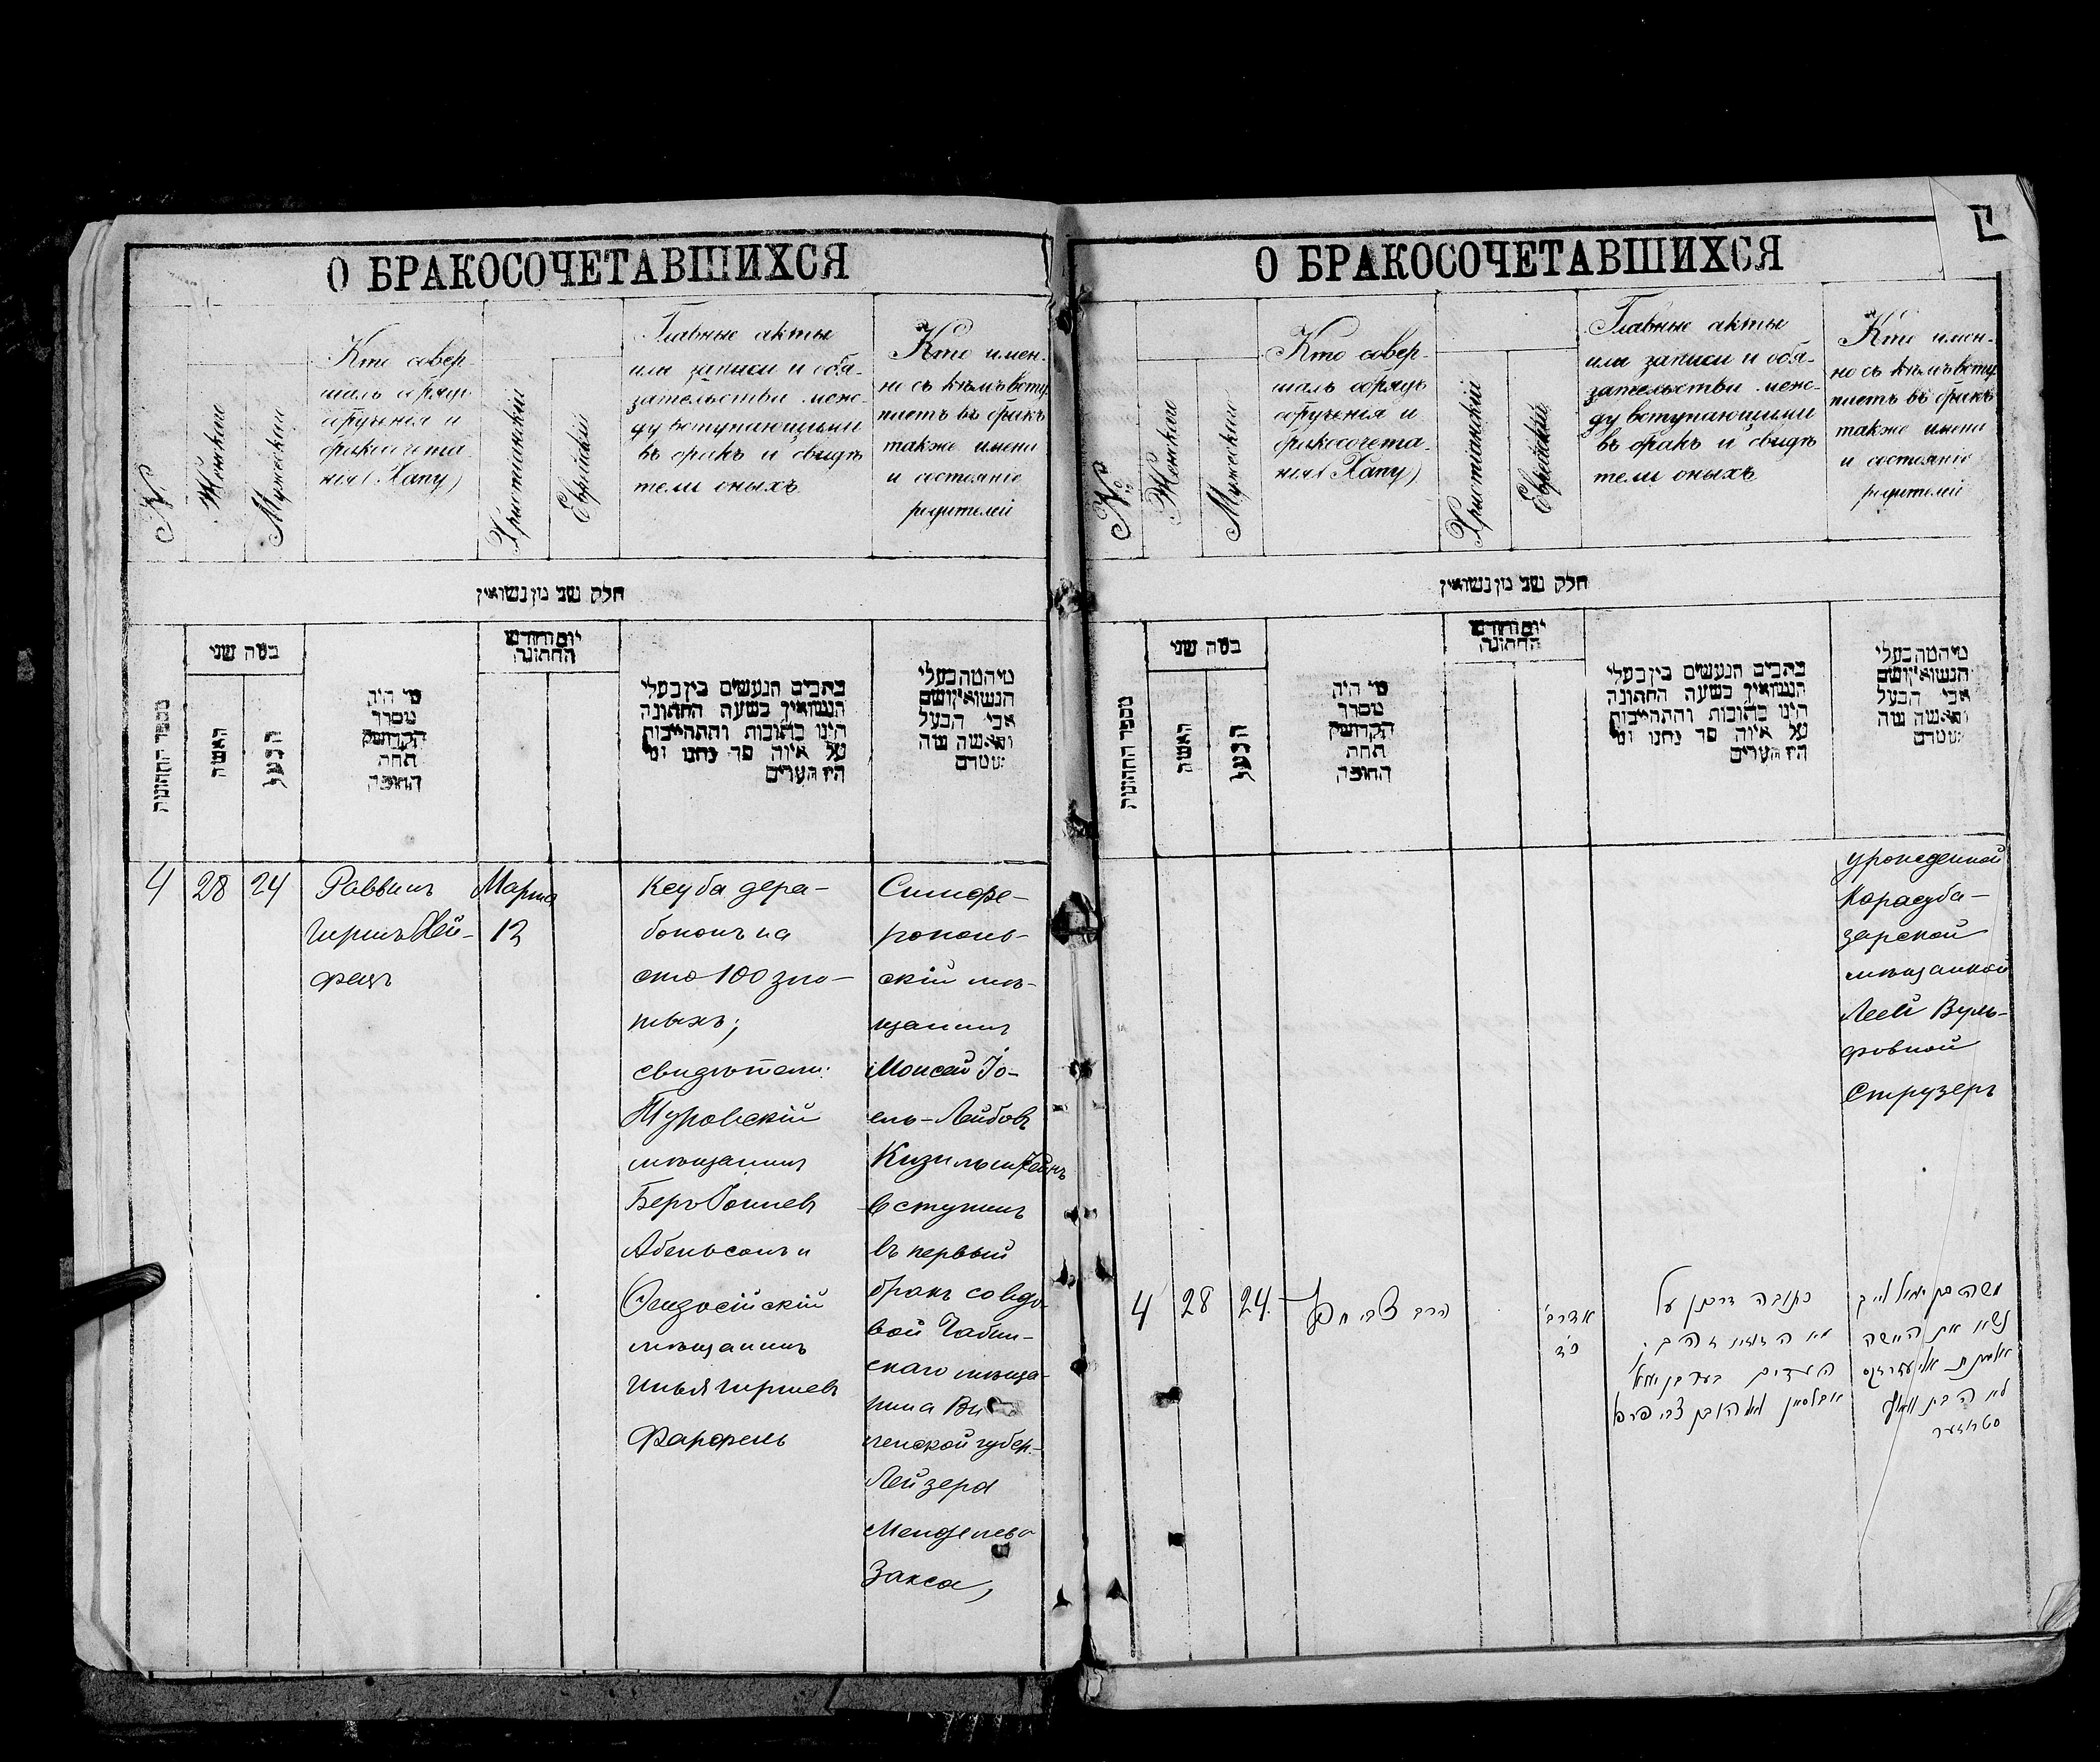 О БРАКОСОЧЕТАВШИХСЯ
№
Женскаго
Мужескаго
Кто совер-
шалъ обрядъ
обрученія и
бракосочета-
нія (Хапу)
Христіанскій
Еврейскій
Главные акты
или записи и обя-
зательстви меж-
ду вступающими
въ бракъ и свидѣ
тели оныхъ
Кто имен-
но съ кѣмъ всту
паетъ въ бракъ
также имена
и состояніе
родителей
חלק שני מן נשואין
מספר החתונות
כמה שני
האשה
הבעל
מי היה
מסדר
הקדושין
תחת
החופה
יום וחודש
החתונה
כתבים הנעשים בין בעלי
הנשואין בשעה החתונה
היינו כתובות והתחייבות
על איזה סך נתנו ומי
היו העדים
מי המה בעלי
הנשואין ושם
אבי הבעל
והאשה ומה
4
28
24
Раввинъ
Гиршъ Хей-
фецъ
Марта
12
Кеуба дера-
бононъ на
сто 100 зло-
тыхъ;
свидѣтели:
Туровскій
мѣщанинъ
Беръ
Абельсонъ и
Ѳеодосійскій
мѣщанинъ
Илья Гиршевъ
Фарфель
Симфе-
рополь-
скій мѣ-
щанинъ
Моисей Іо-
ель-Лейбовъ
Кизильштейнъ
вступилъ
въ первый
бракъ со вдо-
вой
скаго мѣща-
нина Ви
ленской губер.
Лейзера
Менделева
Закса,
О БРАКОСОЧЕТАВШИХСЯ
№
Женскаго
Мужескаго
Кто совер-
шалъ обрядъ
обрученія и
бракосочета-
нія (Хапу)
Христіанскій
Еврейскій
Главные акты
или записи и обя-
зательстви меж-
ду вступающими
въ бракъ и свидѣ
тели оныхъ
Кто имен-
но съ кѣмъ всту
паетъ въ бракъ
также имена
и состояніе
родителей
חלק שני מן נשואין
מספר החתונות
כמה שני
האשה
הבעל
מי היה
מסדר
הקדושין
תחת
החופה
יום וחודש
החתונה
כתבים הנעשים בין בעלי
הנשואין בשעה החתונה
היינו כתובות והתחייבות
על איזה סך נתנו ומי
היו העדים
מי המה בעלי
הנשואין ושם
אבי הבעל
והאשה ומה
урожденной
Карасуба-
зарской
мѣщанкой
Леей Вуль-
фовной
Струзеръ
4
28
24
הרב צבי
אדר ב׳
כתובה דרבנן על
העדים
צבי
משה בן יואל לייב
נשא את האשה
לאה בת וואלף
סטרוזער